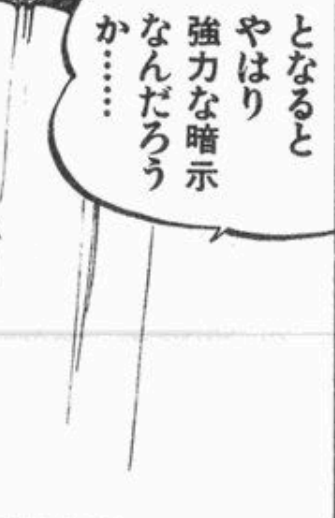 となると
やはり
強力な暗示
なんだろう
か……